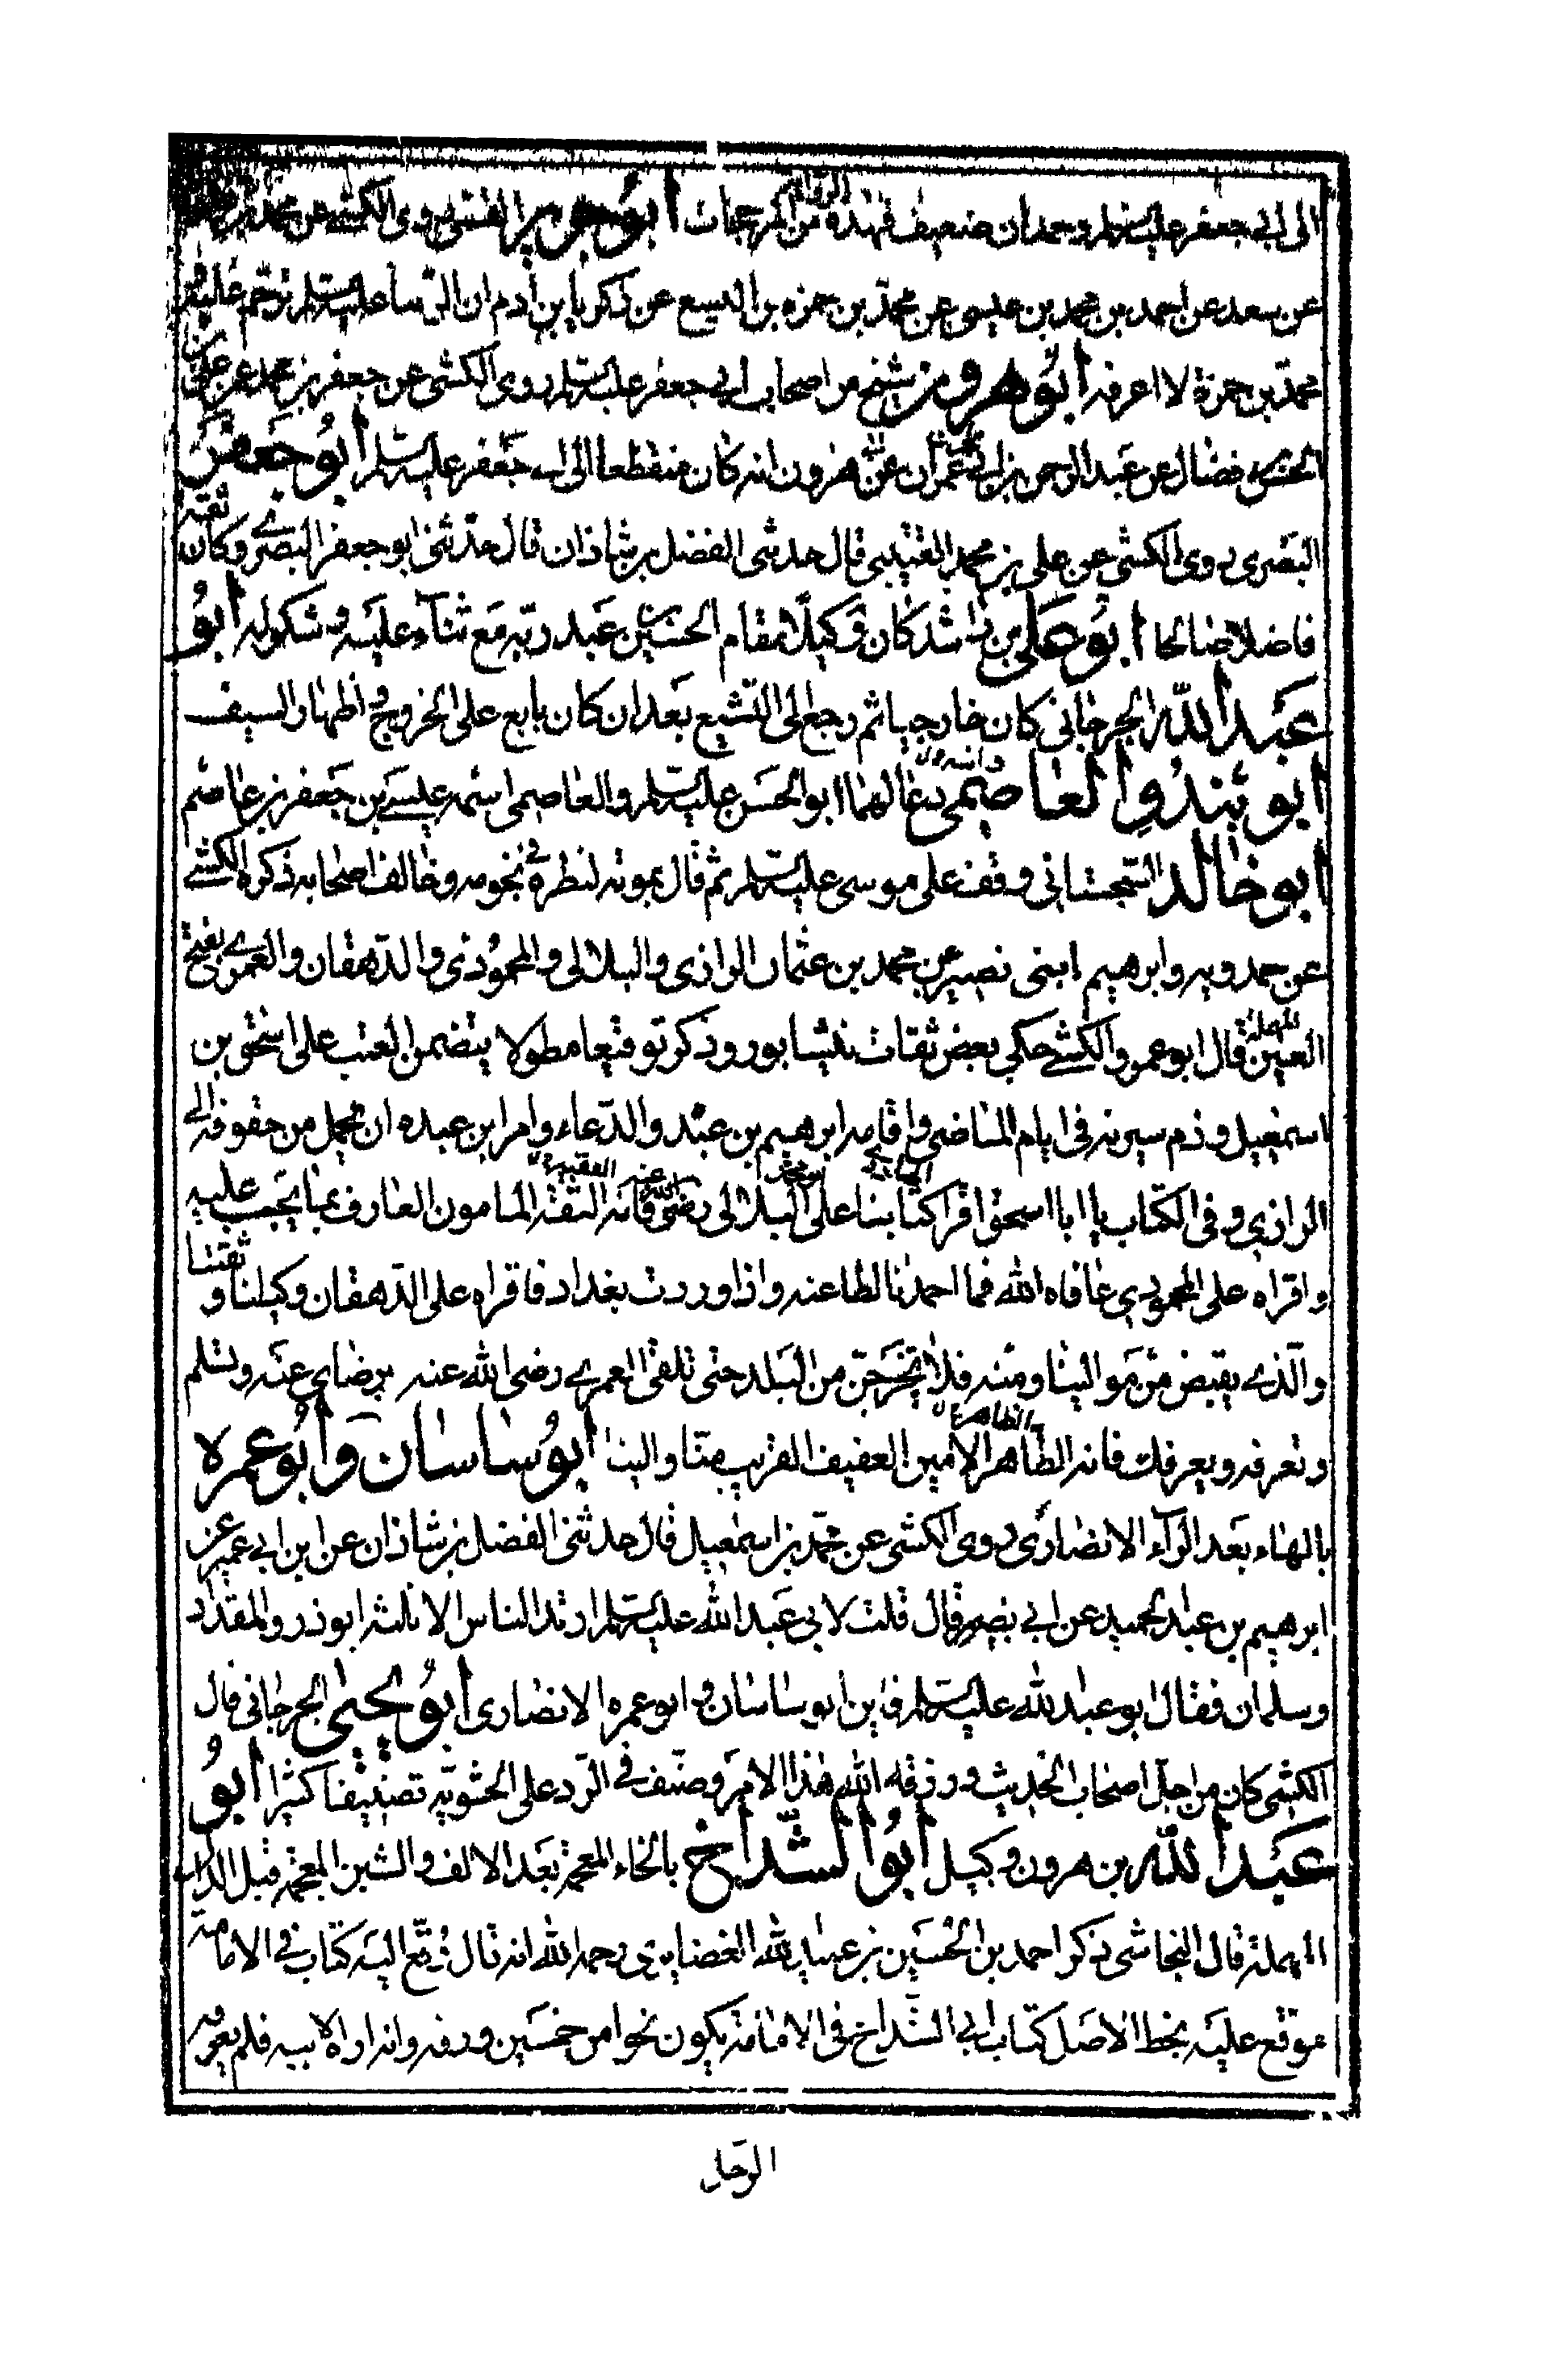 الى ابي جعفر عليه السلم وحمدان ضعيف فهذه الرواية من المرجحات ابو جرير القمي روى الكشي عن محمد بن
عن سعد عن احمد بن محمد بن عيسى عن محمد بن حمزه بن اليسع عن زكريا بن ادم ان الرضا عليه السلم ترحم عليه
محمد بن حمزة لا اعرفه ابو هرون شيخ من اصحاب ابي جعفر عليه السلم روى الكشي عن جعفر بن محمد عن علي بن
الحسن بن فضال عن عبد الرحمن بن ابي عمران عن هرون انه كان منقطعا الى ابي جعفر عليه السلم ابو جعفر
البصرى روى الكشي عن علي بن محمد القتيبي قال حدثني الفضل بن شاذان قال حدثني ابو جعفر البصرى وكان ثقة
فاضلا صالحا ابو علي بن راشد كان وكيلا مقام الحسين بن عبد ربه مع ثناء عليه وشكر له ابو
عبد الله الجرجاني كان خارجيا ثم رجع الى التشيع بعد ان كان بايع على الخروج واظهار السيف
ابو بند والعاصمى دعا لهما ابو الحسن عليه السلم والعاصمي اسمه عيسى بن جعفر بن عاصم
ابو خالد السجستاني وقف على موسى عليه السلم ثم قال بموته لنظره في نجومه وخالف اصحابه ذكره الكشي
عن حمدويه وابرهيم ابنى نصير عن محمد بن عثمان الرازى والبلالى والمحمودى والدهقان والعمرى بفتح
العين المهملة قال ابو عمرو الكشي حكى بعض ثقات نيشابور وذكر توقيعا مطولا يتضمن العتب على اسحق بن
اسمعيل وذم سيرته في ايام الماضي واقامه ابرهيم بن عبده والدعاء وامر ابن عبده ان يحمل من حقوقه الى
الرازي وفي الكتاب يا ابا اسحق اقرا كتابنا على البلالى رضى الله عنه فانه الثقة المامون العارف بما يجب عليه
واقراه على المحمودي عافاه الله فما احمدنا لطاعته واذا وردت بغداد فاقراه على الدهقان وكيلنا وثقتنا
والذي يقبض من موالينا ومنه فلا تخرجن من البلد حتى تلقى العمرى رضى الله عنه برضاي عنه وتسلم
وتعرفه ويعرفك فانه الطاهر الامين العفيف القريب منا والينا ابو ساسان وابو عمره
بالهاء بعد الراء الانصارى روى الكشي عن محمد بن اسمعيل قال حدثني الفضل بن شاذان عن ابن ابي عمير عن
ابرهيم بن عبد الحميد عن ابي بصير قال قلت لابي عبد الله عليه السلم ارتد الناس الا ثلثه ابو ذر والمقداد
وسلمان فقال ابو عبد الله عليه السلم فاين ابو ساسان وابو عمره الانصارى ابو يحيى الجرجاني قال
الكشي كان من اجل اصحاب الحديث ورزقه الله هذا الامر وصنف في الرد على الحشوية تصنيفا كثيرا ابو
عبد الله بن هرون وكيل ابو الشداخ بالخاء المعجمة بعد الالف والشين المعجمة قبل الدال
المهملة قال النجاشي ذكر احمد بن الحسين بن عبيد الله الغضايرى رحمه الله انه قال وقع اليه كتاب في الامامة
موقع عليه بخط الاصل كتاب ابي الشداخ في الامامة يكون نحوا من خمسين ورقه وانه اراه لابيه فلم يعرف
الرجل